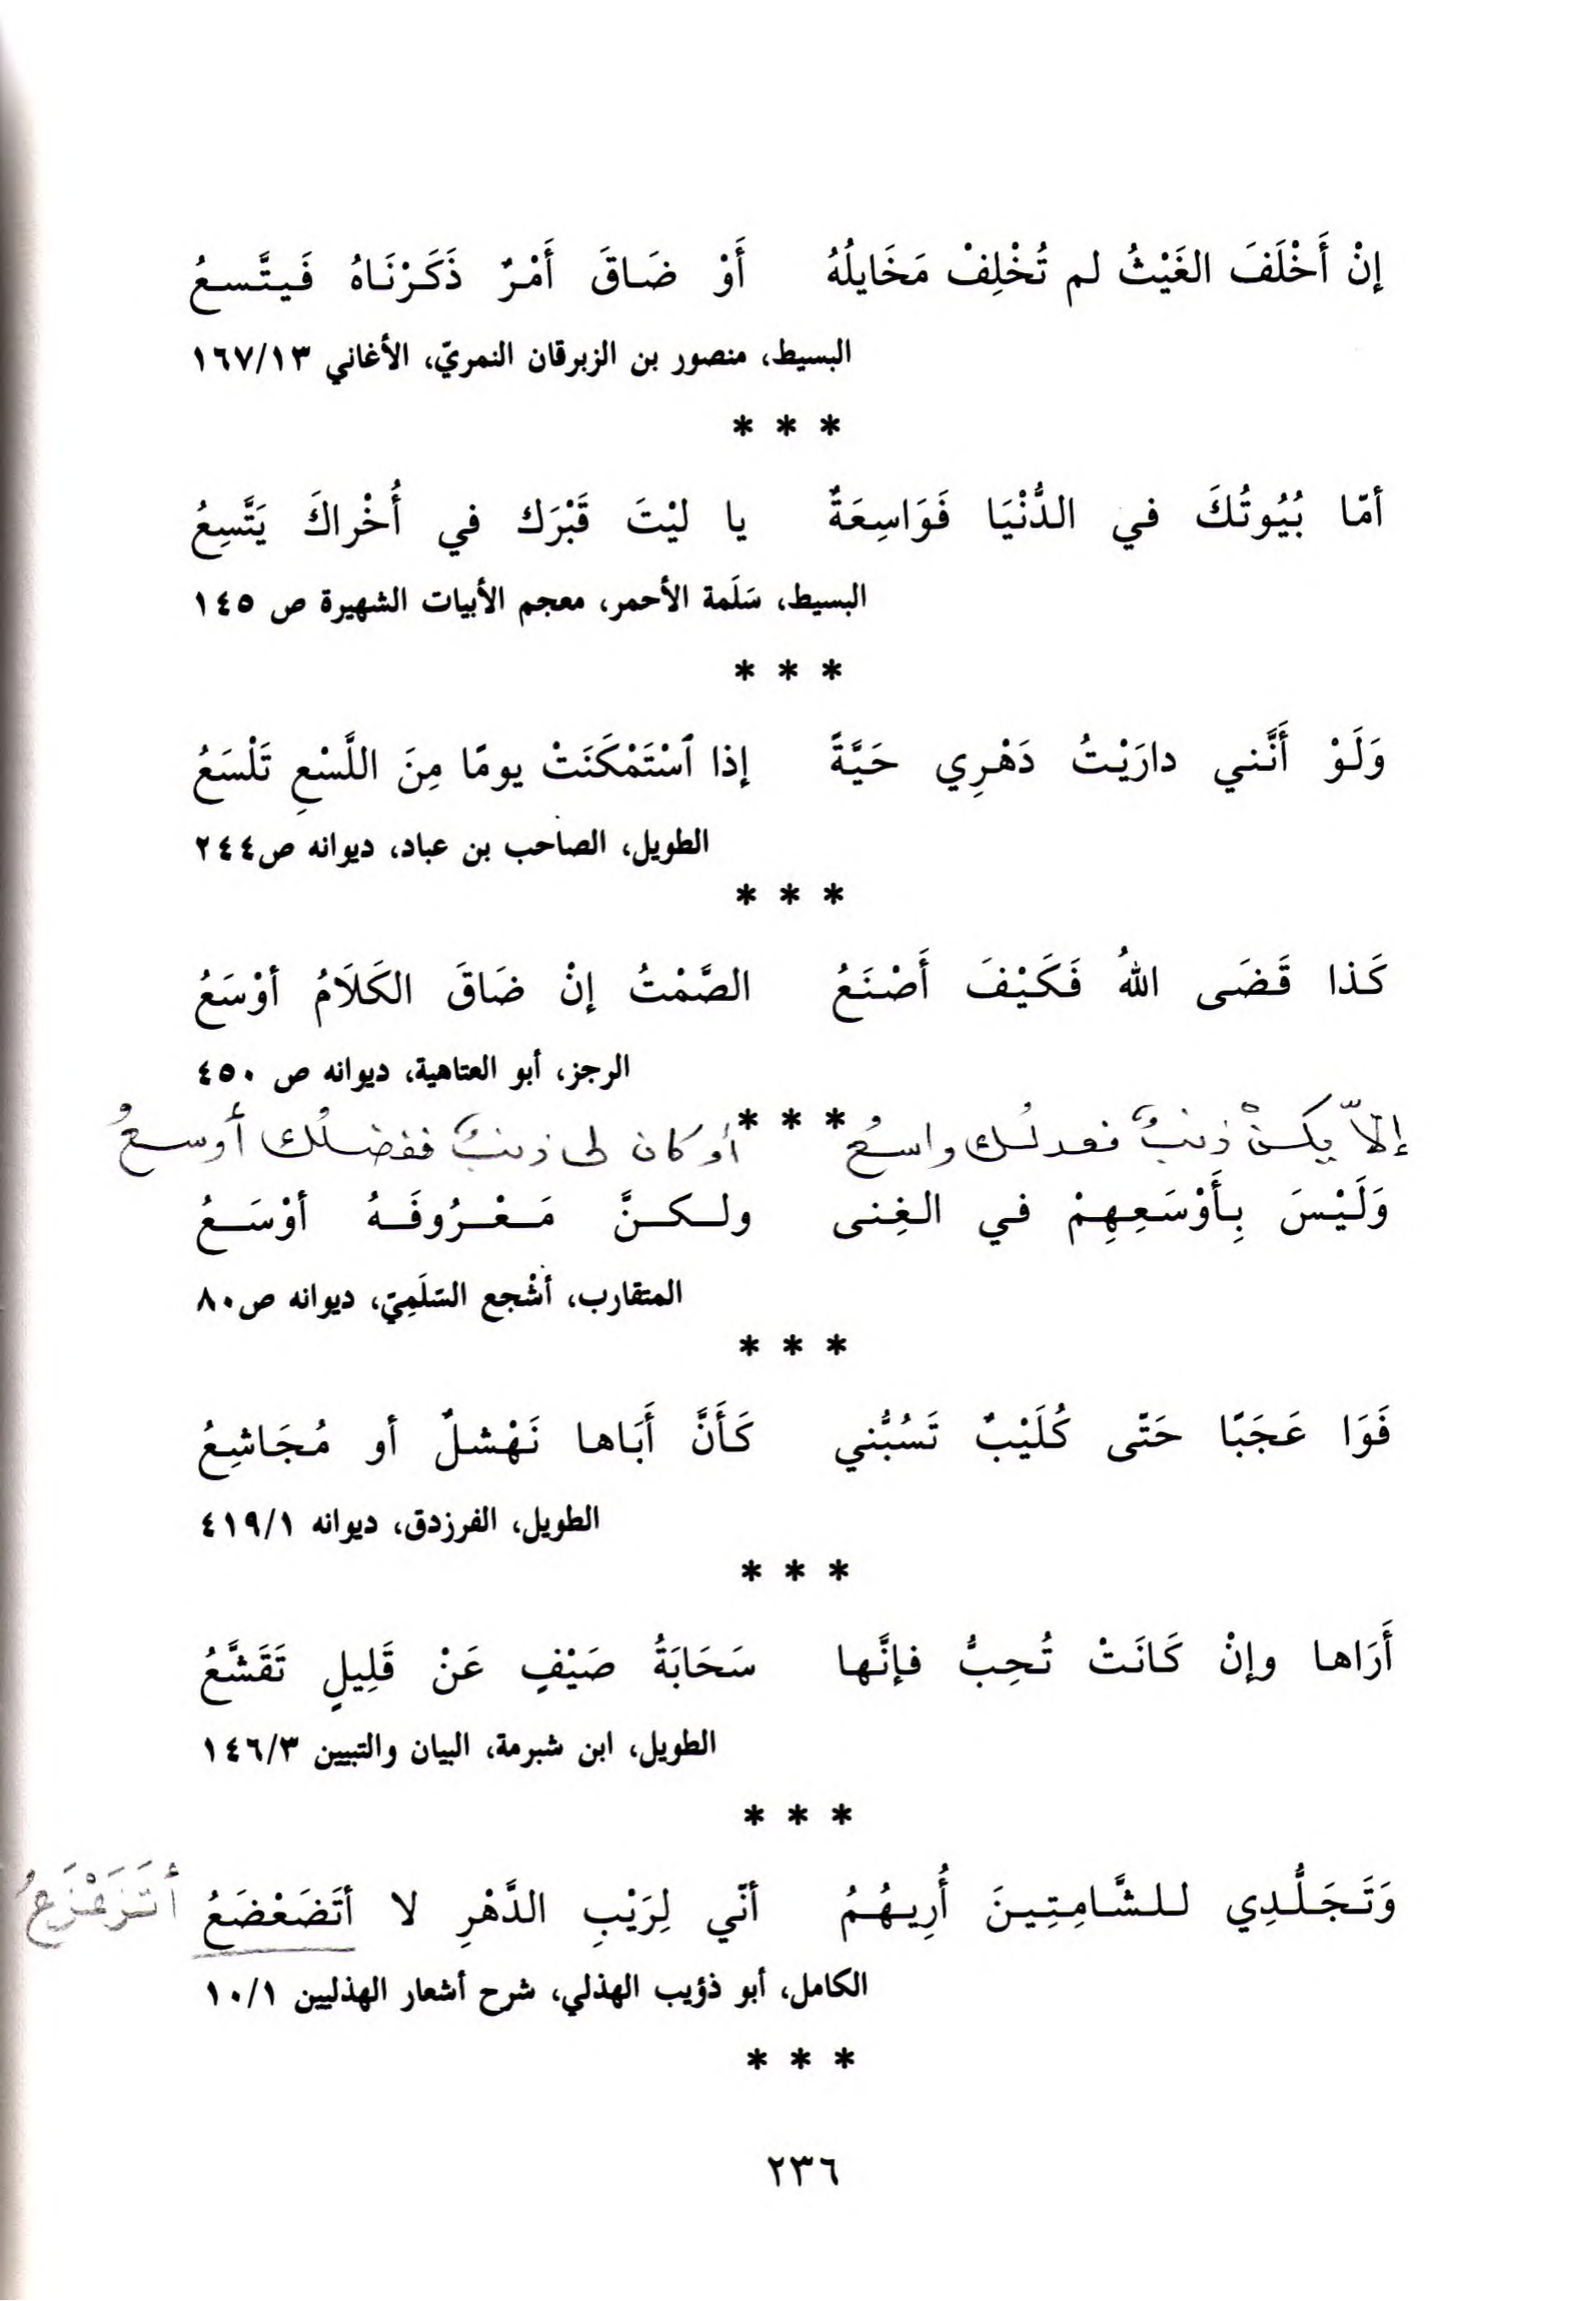 إنْ أَخْلَفَ الغَيْثُ لم تُخْلِفْ مَخَايلُهُ أَوْ ضَاقَ أَمْرٌ ذَكَرْنَاهُ فَيتَّسعُ
البسيط، منصور بن الزبرقان النمريّ، الأغاني ١٦٧/١٣
* * *
أمّا بُيُوتُكَ في الدُّنْيَا فَوَاسِعَةٌ يا ليْتَ قَبْرَك في أُخْراكَ يَتَّسِعُ
البسيط، سَلَمة الأحمر، معجم الأبيات الشهيرة ص ١٤٥
* * *
وَلَوْ أَنَّني دارَيْتُ دَهْرِي حَيَّةً إذا ٱسْتَمْكَنَتْ يومًا مِنَ اللَّسْعِ تَلْسَعُ
الطويل، الصاحب بن عباد، ديوانه ص٢٤٤
* * *
كَذا قَضَى اللهُ فَكَيْفَ أَصْنَعُ الصَّمْتُ إنْ ضَاقَ الكَلَامُ أوْسَعُ
الرجز، أبو العتاهية، ديوانه ص ٤٥٠
* * *
إلاّ يكنْ ذنبٌ فعدلُك واسعُ أو كان لى ذنبٌ ففضلُك أوسعُ
وَلَيْسَ بِأَوْسَعِهِمْ في الغِنى ولكنَّ مَعْرُوفَهُ أوْسَعُ
المتقارب، أشْجع السّلَمِيّ، ديوانه ص٨٠
* * *
فَوَا عَجَبًا حَتّى كُلَيْبٌ تَسُبُّني كَأَنَّ أَبَاها نَهْشلٌ أو مُجَاشِعُ
الطويل، الفرزدق، ديوانه ٤١٩/١
* * *
أَرَاها وإنْ كَانَتْ تُحِبُّ فإنَّها سَحَابَةُ صَيْفٍ عَنْ قَلِيلٍ تَقَشَّعُ
الطويل، ابن شبرمة، البيان والتبيين ١٤٦/٣
* * *
وَتَجَلُّدِي للشَّامِتِينَ أُرِيهُمُ أنّي لِرَيْبِ الدَّهْرِ لا أتَضَعْضَعُ أتَزَعْزَعُ
الكامل، أبو ذؤيب الهذلي، شرح أشعار الهذليين ١٠/١
* * *
٢٣٦